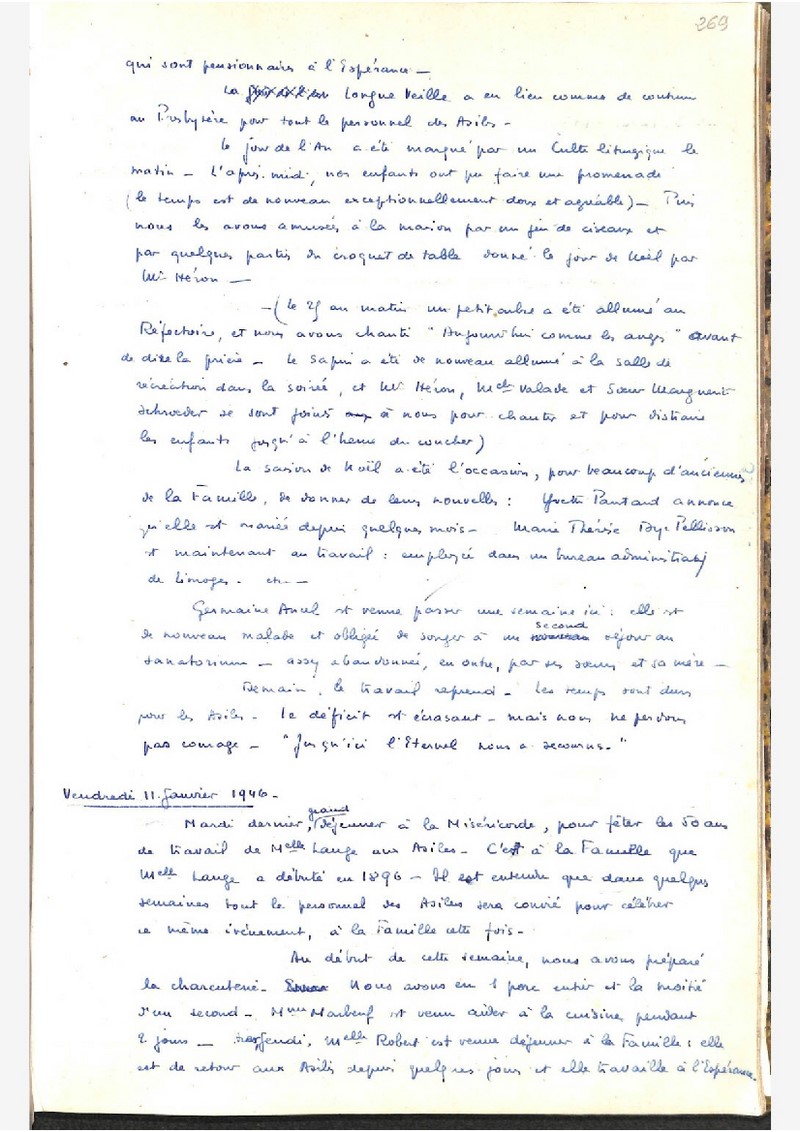 269
qui sont pensionnaires à l'Espérance —
La Longue Veille a eu lieu comme de coutume
au Presbytère pour tout le personnel des Asiles -
Le jour de l'An a été marqué par un Culte liturgique le
matin - L'après-midi, nos enfants ont pu faire une promenade
(le temps est de nouveau exceptionnellement doux et agréable) - Puis
nous les avons amusés à la maison par un jeu de ciseaux et
par quelques parties du croquet de table donné le jour de Noël par
Mr Héron —
- (Le 25 au matin un petit arbre a été allumé au
Réfectoire, et nous avons chanté "Aujourd'hui comme les anges" avant
de dire la prière - Le sapin a été de nouveau allumé à la salle de
récréation dans la soirée, et Mr Héron, Melle Valade et Sœur Marguerite
Schroeder se sont joints à nous pour chanter et pour distraire
les enfants jusqu'à l'heure du coucher)
La saison de Noël a été l'occasion, pour beaucoup d'anciennes
de la Famille, de donner de leurs nouvelles : Yvette Pautaud annonce
qu'elle est mariée depuis quelques mois - Marie Thérèse Pellisson
est maintenant au travail : employée dans un bureau administratif
de Limoges - etc —
Germaine est venue passer une semaine ici : elle est
de nouveau malade et obligée de songer à un second séjour au
sanatorium - assez abandonnée, en outre, par ses sœurs et sa mère -
Demain, le travail reprend - Les temps sont durs
pour les Asiles - le déficit est écrasant - mais nous ne perdons
pas courage - "Jusqu'ici l'Eternel nous a secourus."
Vendredi 11 Janvier 1946 -
Mardi dernier, grand déjeuner à la Miséricorde, pour fêter les 50 ans
de travail de Melle Lange aux Asiles - C'est à la Famille que
Melle Lange a débuté en 1896 - Il est entendu que dans quelques
semaines tout le personnel des Asiles sera convié pour célébrer
ce même événement, à la Famille cette fois -
Au début de cette semaine, nous avons préparé
la charcuterie - Nous avons eu 1 porc entier et la moitié
d'un second - Mme Marbeuf est venu aider à la cuisine pendant
2 jours — Jeudi, Melle Robert est venue déjeuner à la Famille : elle
est de retour aux Asiles depuis quelques jours et elle travaille à l'Espérance.